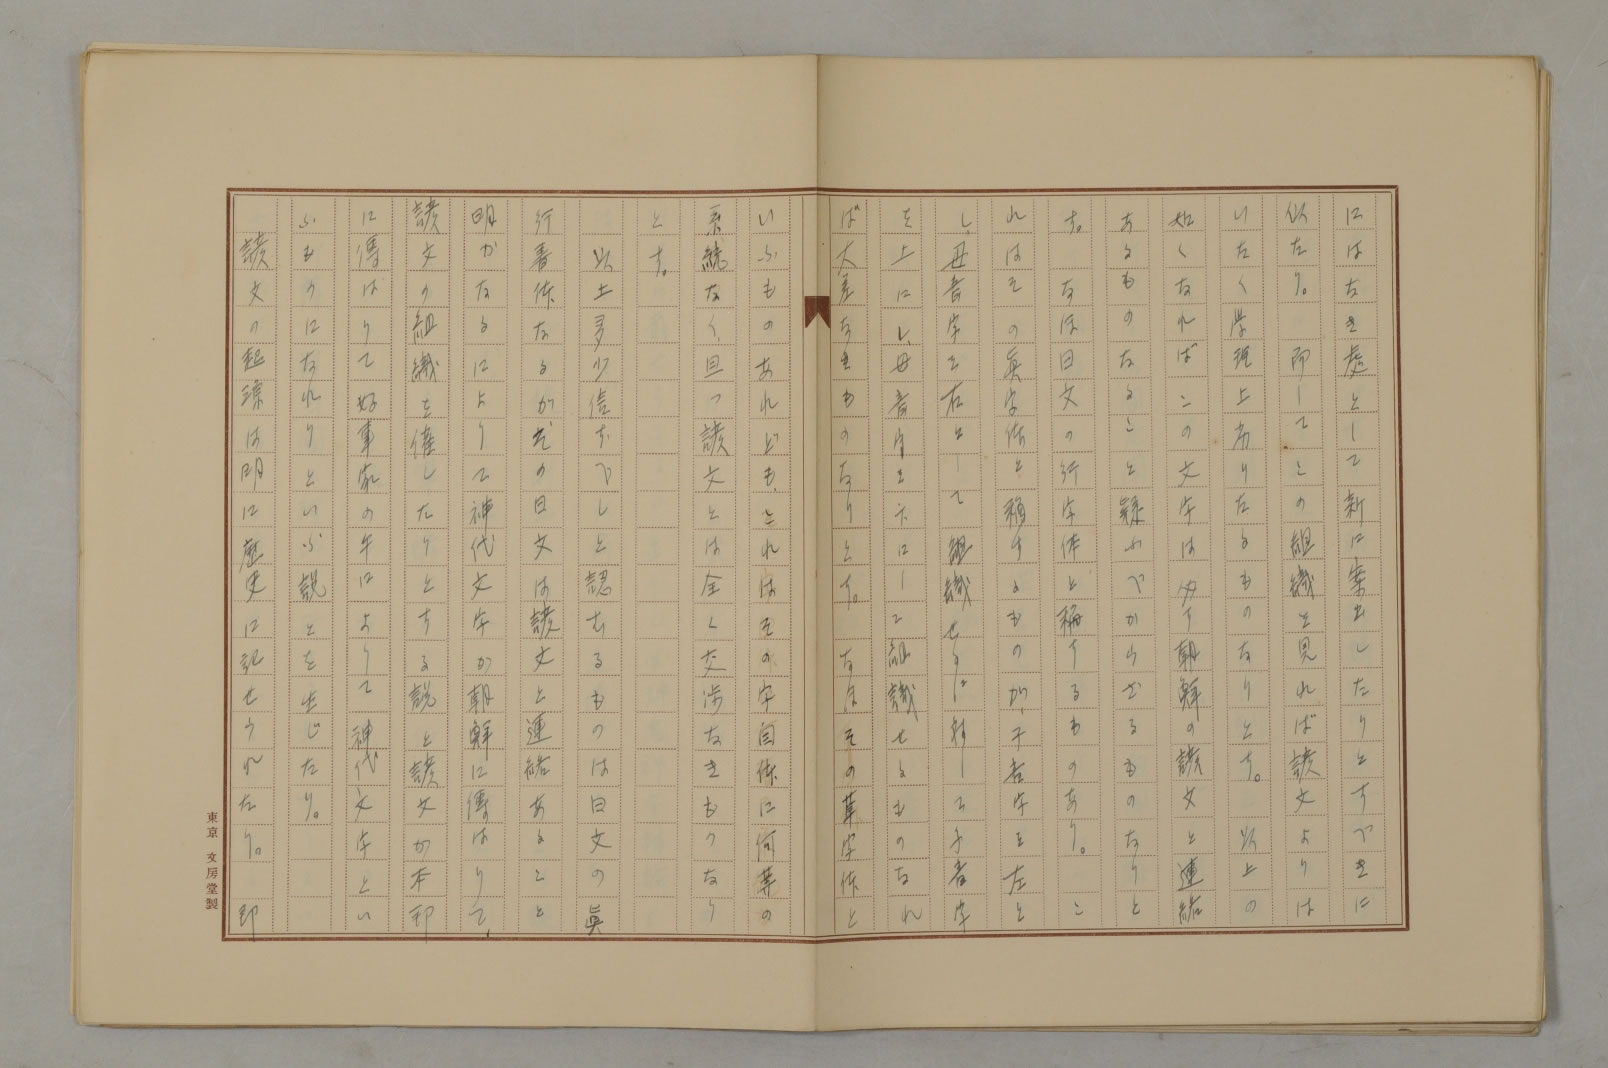 にはなき處として新に案出したりとすべきに
似たり。而してこの組織を見れば諺文よりは
いたく学理上劣りたるものなりとす。以上の
如くなればこの文字は必す朝鮮の諺文と連絡
あるものなること疑ふべからざるものなりと
す。なほ日文の行字体と稱するものあり。こ
れはその真字体と稱するものが、子音字を左と
し、母音字を右として組織せるに対して子音字
を上にし、母音字を下にして組織せるものなれ
ば大差なきものなりとす。なほその草字体と
いふものあれども、これはその字自体に何等の
系統なく、且つ諺文とは全く交渉なきものなり
とす。
以上多少信ずべしと認むるものは日文の眞
行書体なるがその日文は諺文と連絡あること
明かなるによりて神代文字が朝鮮に傳はりて、
諺文の組織を催したりとする説と諺文が本邦
に傳はりて好事家の手によりて神代文字とい
ふものになれりといふ説とを生じたり。
諺文の起源は明に歴史に記せられたり。即
東京 文房堂製